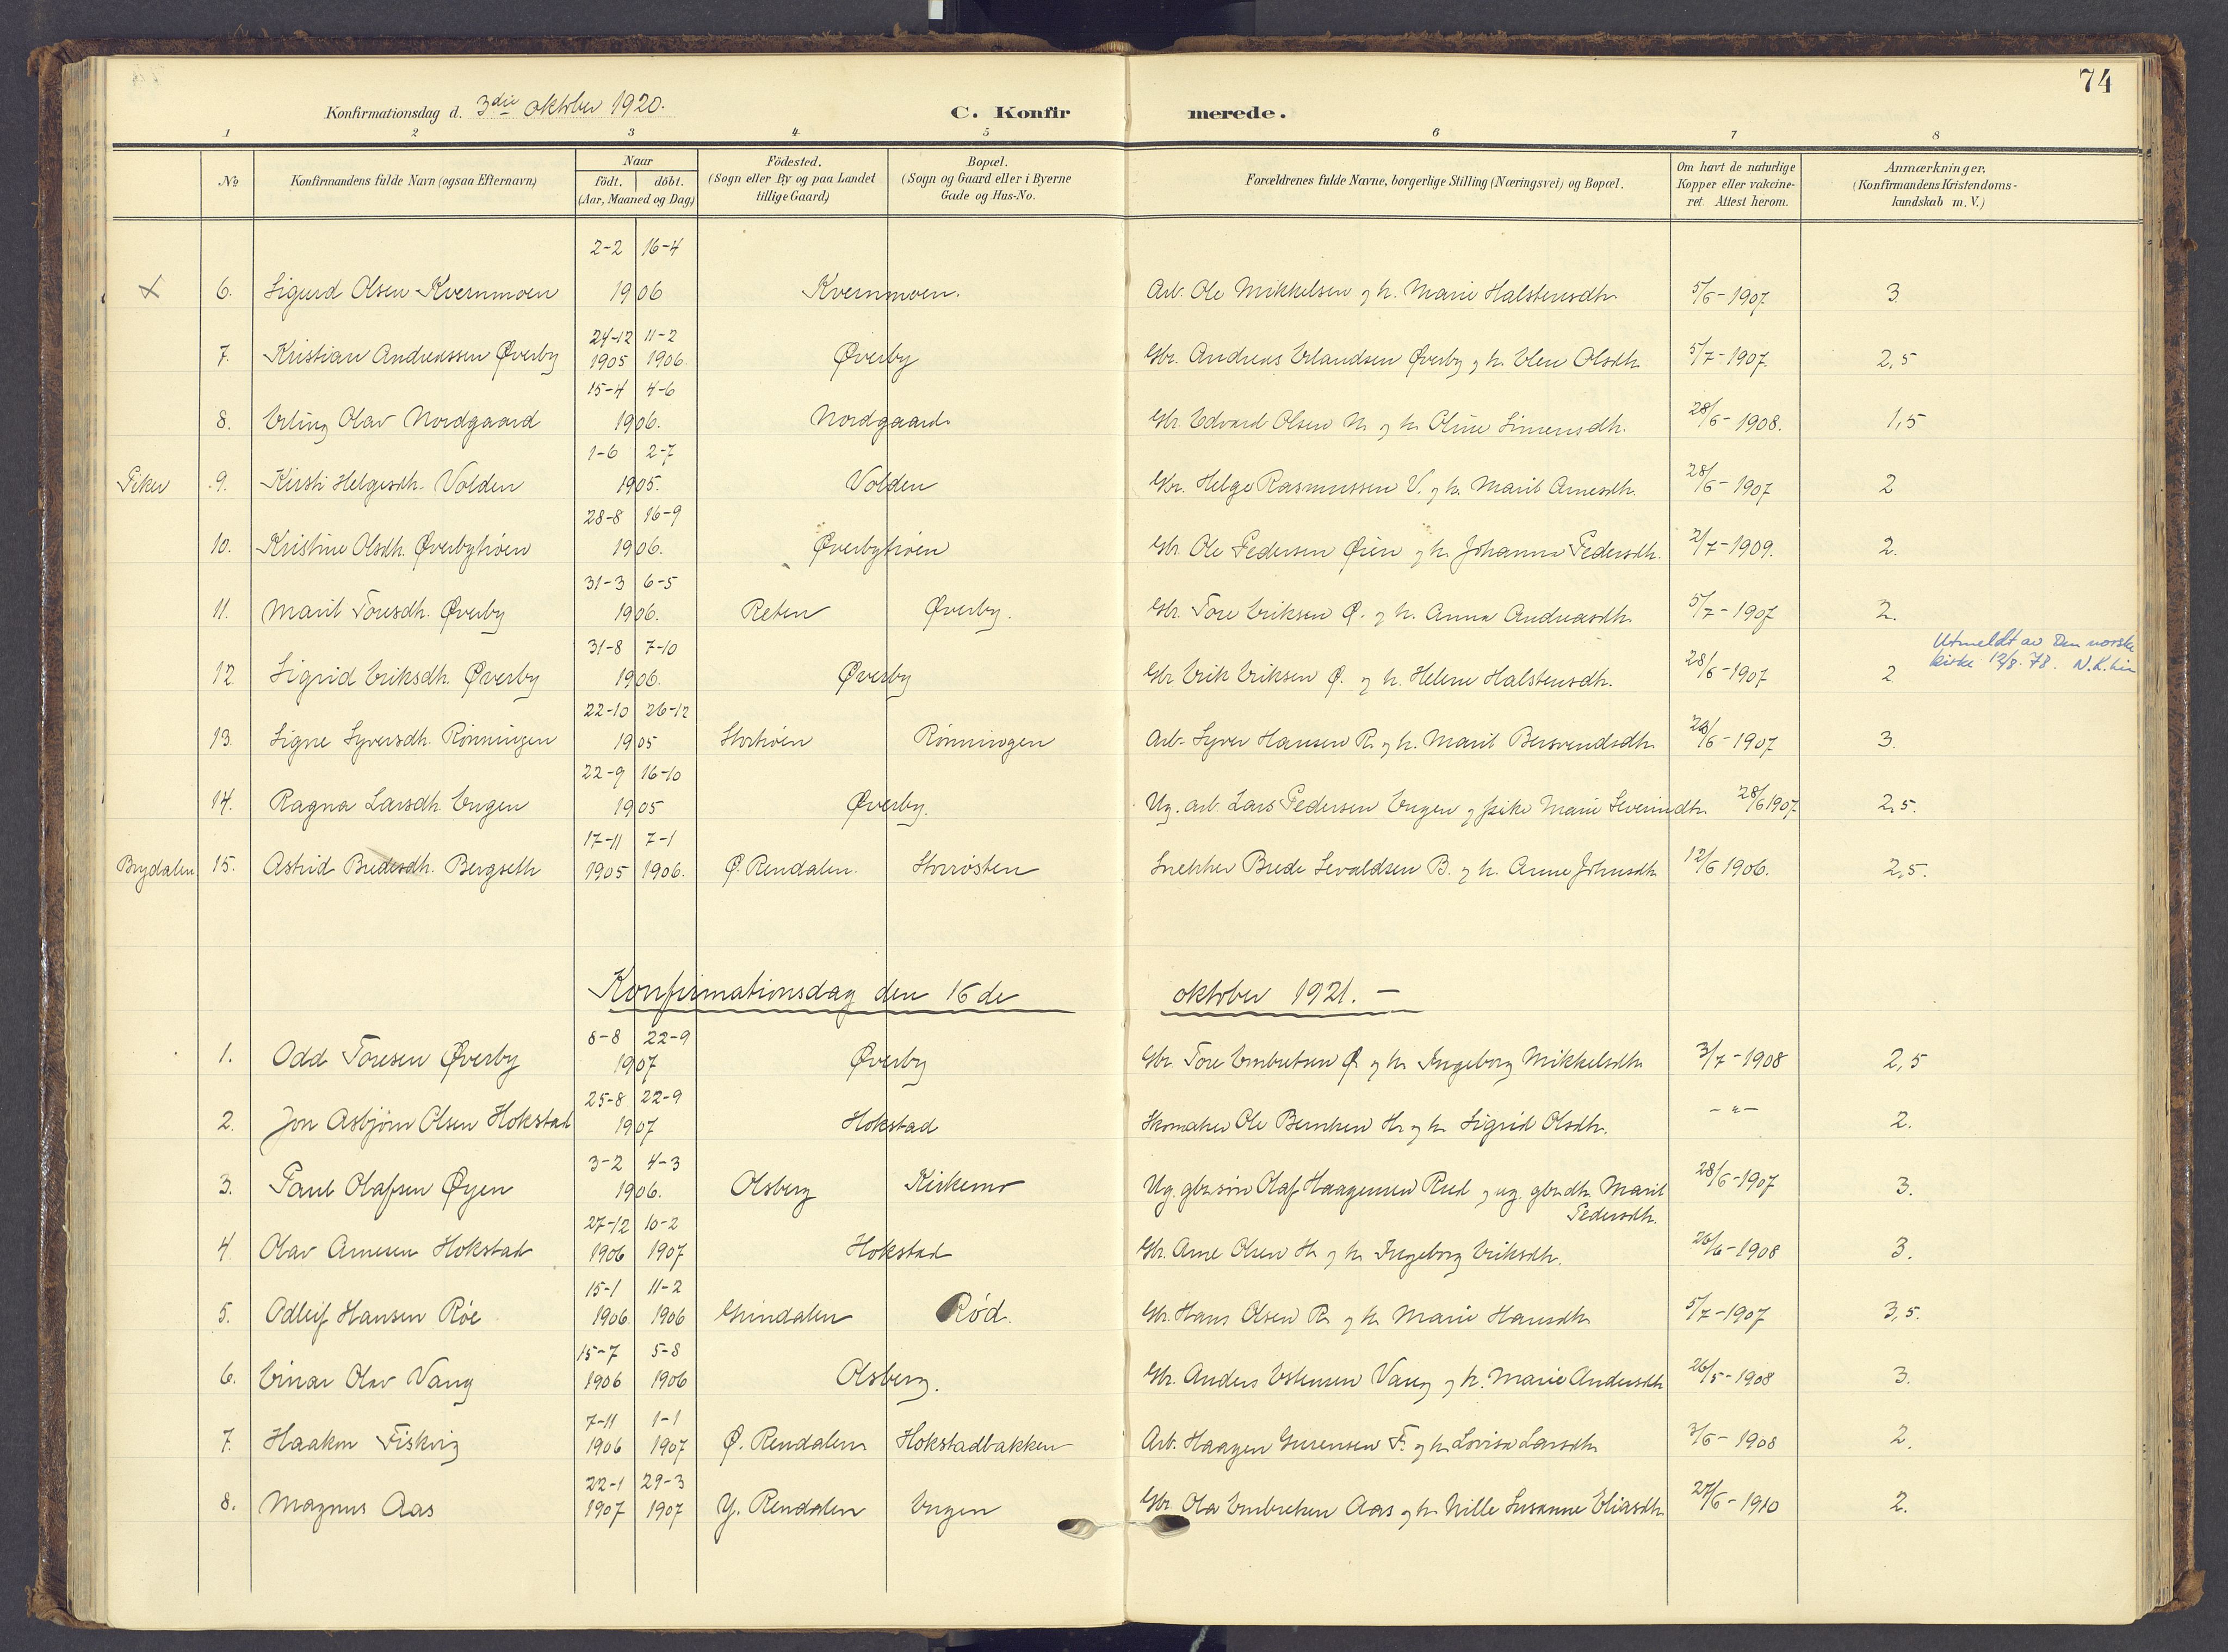 74
Konfirmationsdag d. 3die oktober 1920.
C. Konfirmerede.
1 2 3 4 5 6 7 8
No
Konfirmandens fulde Navn (ogsaa Efternavn)
Naar
født. döbt.
(Aar, Maaned og Dag)
Födested.
(Sogn eller By og paa Landet
tillige Gaard)
Bopæl.
(Sogn og Gaard eller i Byerne
Gade og Hus-No.
Forældrenes fulde Navne, borgerlige Stilling (Næringsvei) og Bopæl.
Om havt de naturlige
Kopper eller vakcine-
ret. Attest herom.
Anmærkninger.
(Konfirmandens Kristendoms-
kundskab m. V.)
2-2 16-4
x 6. Sigurd Olsen Kvernmoen 1906 Kvernmoen. Arb. Ole Mikkelsen og h. Marie Halstensdtr. 5/6-1907 3
24-12 11-2
7. Kristian Andreassen Øverby 1905 1906. Øverby Gbr. Andreas Erlandsen Øverby og h. Elen Olsdh. 5/7-1907. 2,5
15-4 4-6
8. Erling Olav Nordgaard 1906. Nordgaard Gbr. Edvard Olsen N. og h. Oline Simensdh. 28/6-1908. 1,5
1-6 2-7
Piker 9. Kirsti Helgesdh. Volden 1905. Volden Gbr. Helge Rasmussen V. og h. Marit Arnesdh. 28/6-1907 2
28-8 16-9
10. Kristine Olsdh. Øverbytrøen 1906. Øverbytrøen Gbr. Ole Pedersen Øien og h. Johanna Pedersdh. 2/7-1909. 2.
31-3 6-5
11. Marit Toresdh. Øverby 1906. Reten Øverby. Gbr. Tore Eriksen Ø. og h. Anna Andreasdh. 5/7-1907 2.
31-8 7-10
Utmeldt av Den norske
kirke 12/8.78. N.K.Lie
12. Sigrid Eriksdh. Øverby 1906. Øverby Gbr Erik Eriksen Ø. og h. Helene Halstensdh. 28/6-1907 2
22-10 26-12
13. Signe Syversdh. Rønningen 1905 Stortrøen Rønningen Arb. Syver Hansen R. og h. Marit Bersvendsdh. 28/6-1907 3.
22-9 16-10
14. Ragna Larsdh. Engen 1905 Øverby. Ug. arb. Lars Pedersen Engen og pike Marie Severinsdtr. 28/6 1907 2,5.
17-11 7-1
Brydalen 15. Astrid Bredesdh. Bergseth 1905 1906. Ø. Rendalen. Storrøsten Snekker Brede Sevaldsen B. og h. Anne Johnsdh. 12/6 1906. 2,5.
Konfirmationsdag den 16de oktober 1921. -
8-8 22-9
1. Odd Toresen Øverby 1907 Øverby Gbr. Tore Embretsen Ø. og h. Ingeborg Mikkelsdh. 3/7-1908 2,5
25-8 22-9
2. Jon Asbjörn Olsen Hokstad 1907 Hokstad Skomaker Ole Berntsen H. og h. Sigrid Olsdh. -"- 2.
3-2 4-3
3. Paul Olafsen Øyen 1906. Olsberg Kirkemo Ug. gbr.søn Olaf Haagensen Rud og ug. gbr.dh. Marit 28/6-1907 3.
Pedersdh.
27-12 10-2
4. Olav Arnesen Hokstad 1906 1907 Hokstad Gbr. Arne Olsen H. og h. Ingeborg Eriksdh. 26/6-1908 3.
15-1 11-2
5. Odleif Hansen Röe 1906. 1906 Grindalen Röd. Gbr. Hans Olsen R. og h. Marie Hansdh. 5/7-1907 3,5.
15-7 5-8
6. Einar Olav Vang 1906 1906 Olsberg. Gbr. Anders Estensen Vang og h. Marie Andersdh. 26/5-1908 3.
7-11 1-1
7. Haakon Fiskvig 1906 1907 Ø. Rendalen Hokstadbakken Arb. Haagen F. og h. Lovise Larsdh. 3/6-1908 2.
22-1 29-3
8. Magnus Aas 1907 1907 Y. Rendalen Engen Gbr. Ola Embretsen Aas og h. Nille Susanne Eliasdh. 27/6-1910 2.